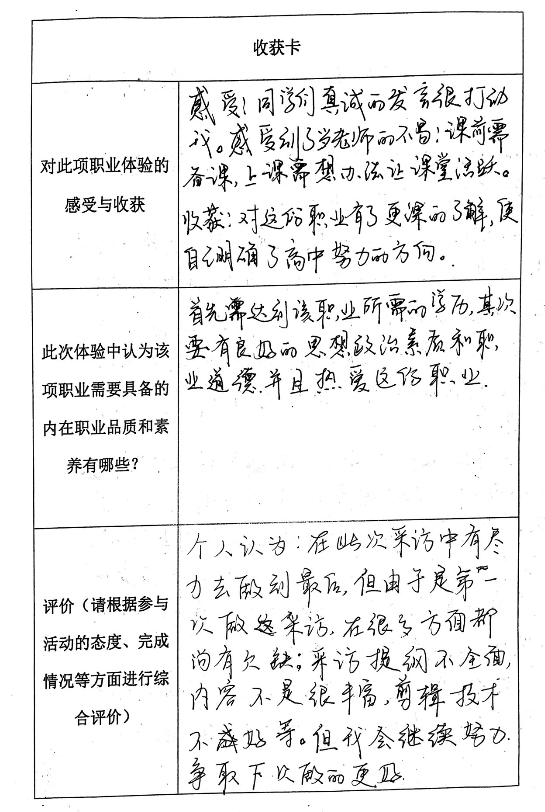 收获卡
对此项职业体验的
感受与收获
感受：同学们真诚的发言很打动
我。感受到了当老师的不易：课前需
备课，上课需想办法让课堂活跃。
收获：对这份职业有了更深的了解，使
自己明确了高中努力的方向。
此次体验中认为该
项职业需要具备的
内在职业品质和素
养有哪些？
首先需达到该职业所需的学历，其次
要有良好的思想政治素质和职
业道德.并且热爱这份职业.
评价（请根据参与
活动的态度、完成
情况等方面进行综
合评价）
个人认为：在此次采访中有尽
力去做到最后，但由于是第一
次做这采访，在很多方面都
尚有欠缺；采访提纲不全面，
内容不是很丰富，剪辑技术
不好等。但我会继续努力.
争取下次做的更好.